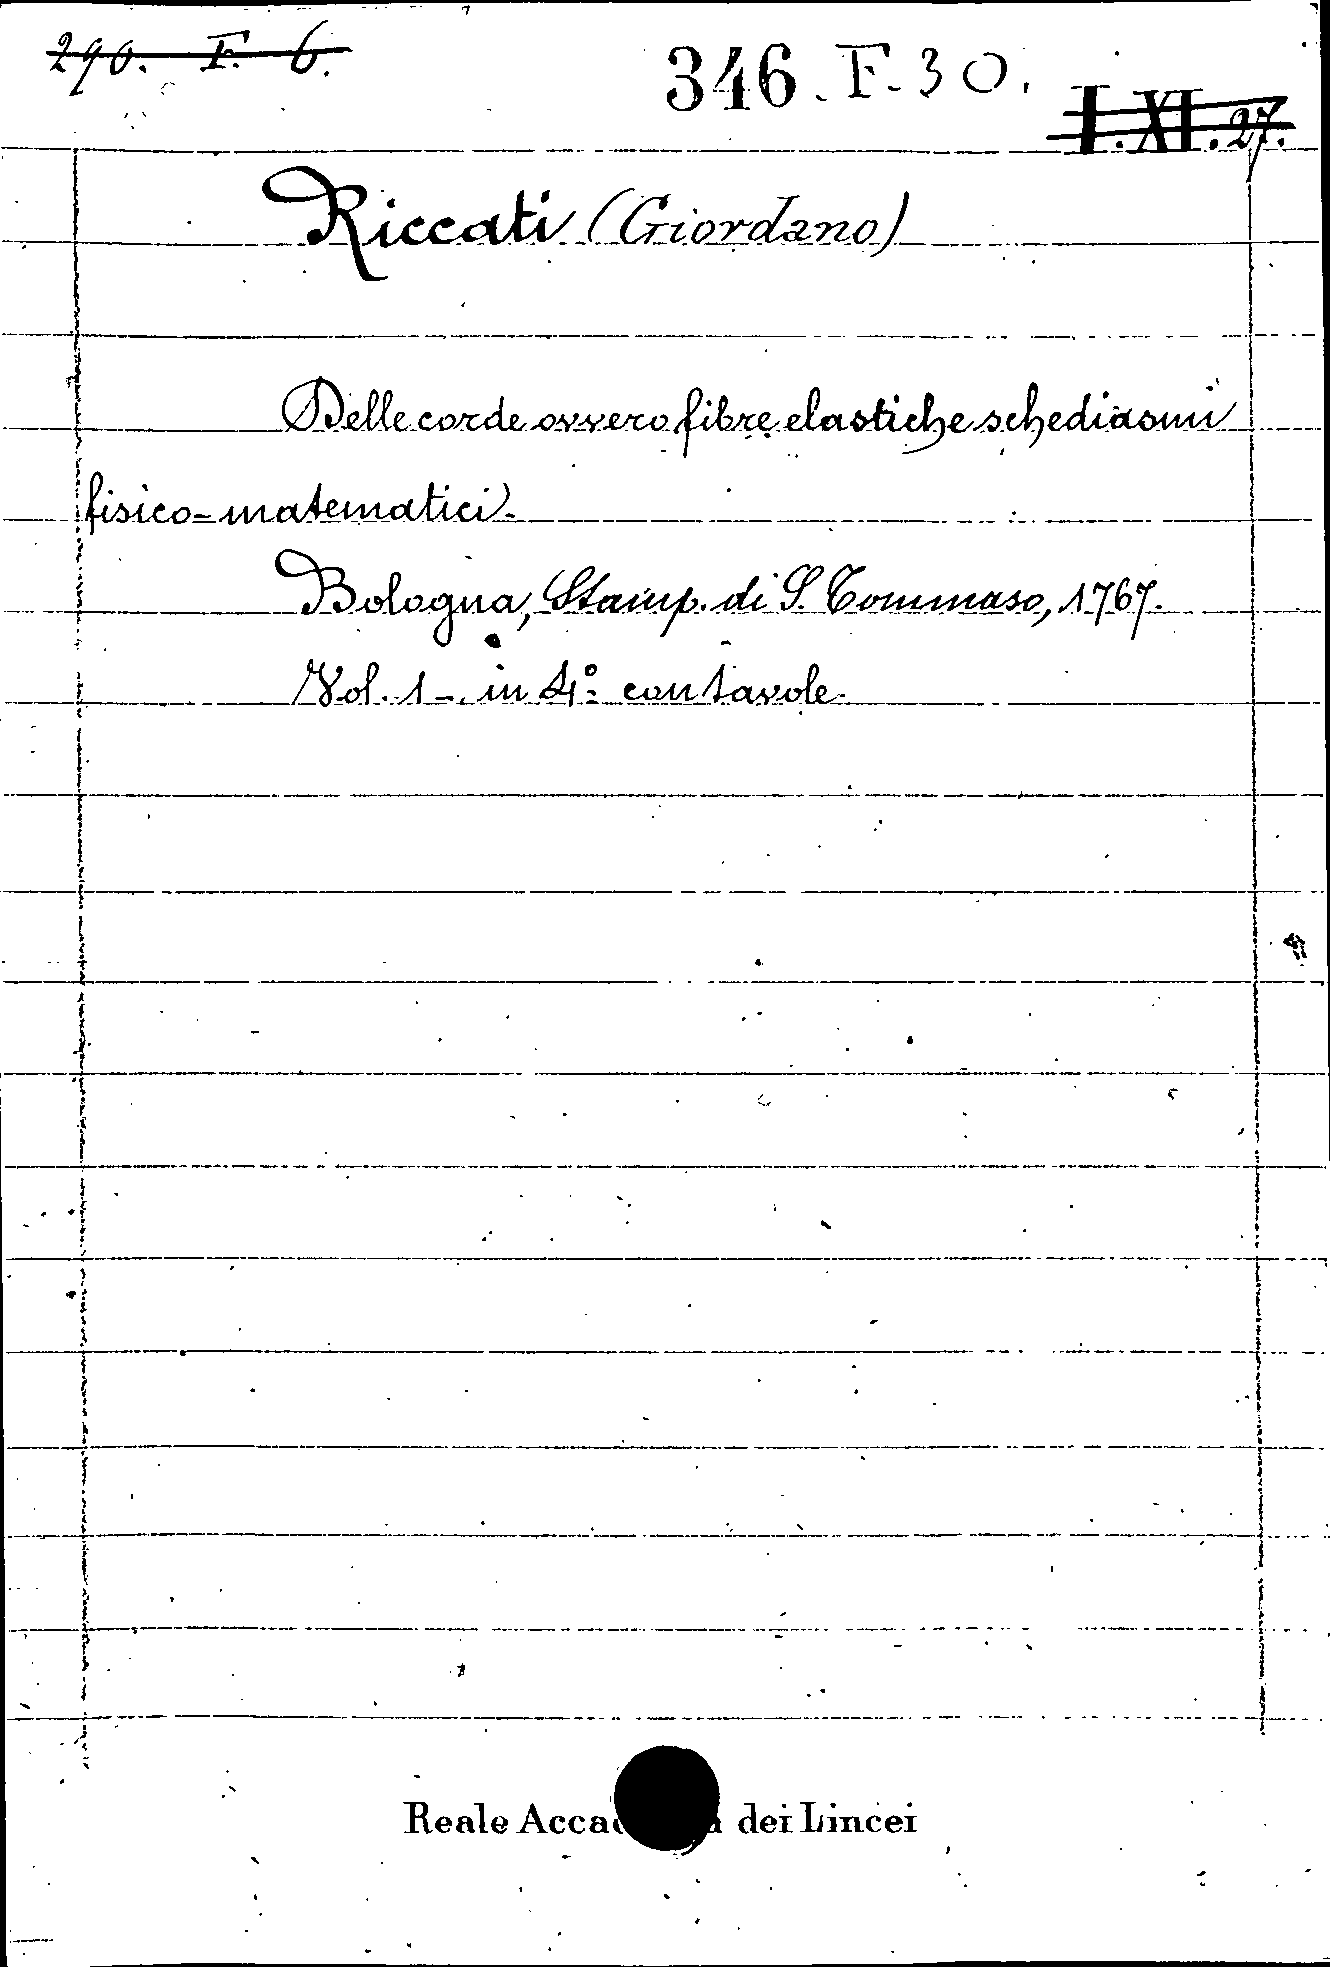 290. F. 6.
346. F. 30.
I. XI. 27.
Riccati (Giordano)
Delle corde ovvero fibre elastiche schediasmi
fisico-matematici.
Bologna, Stamp. di S. Tommaso, 1767.
Vol. 1 - in 4º con tavole.
Reale dei Lincei